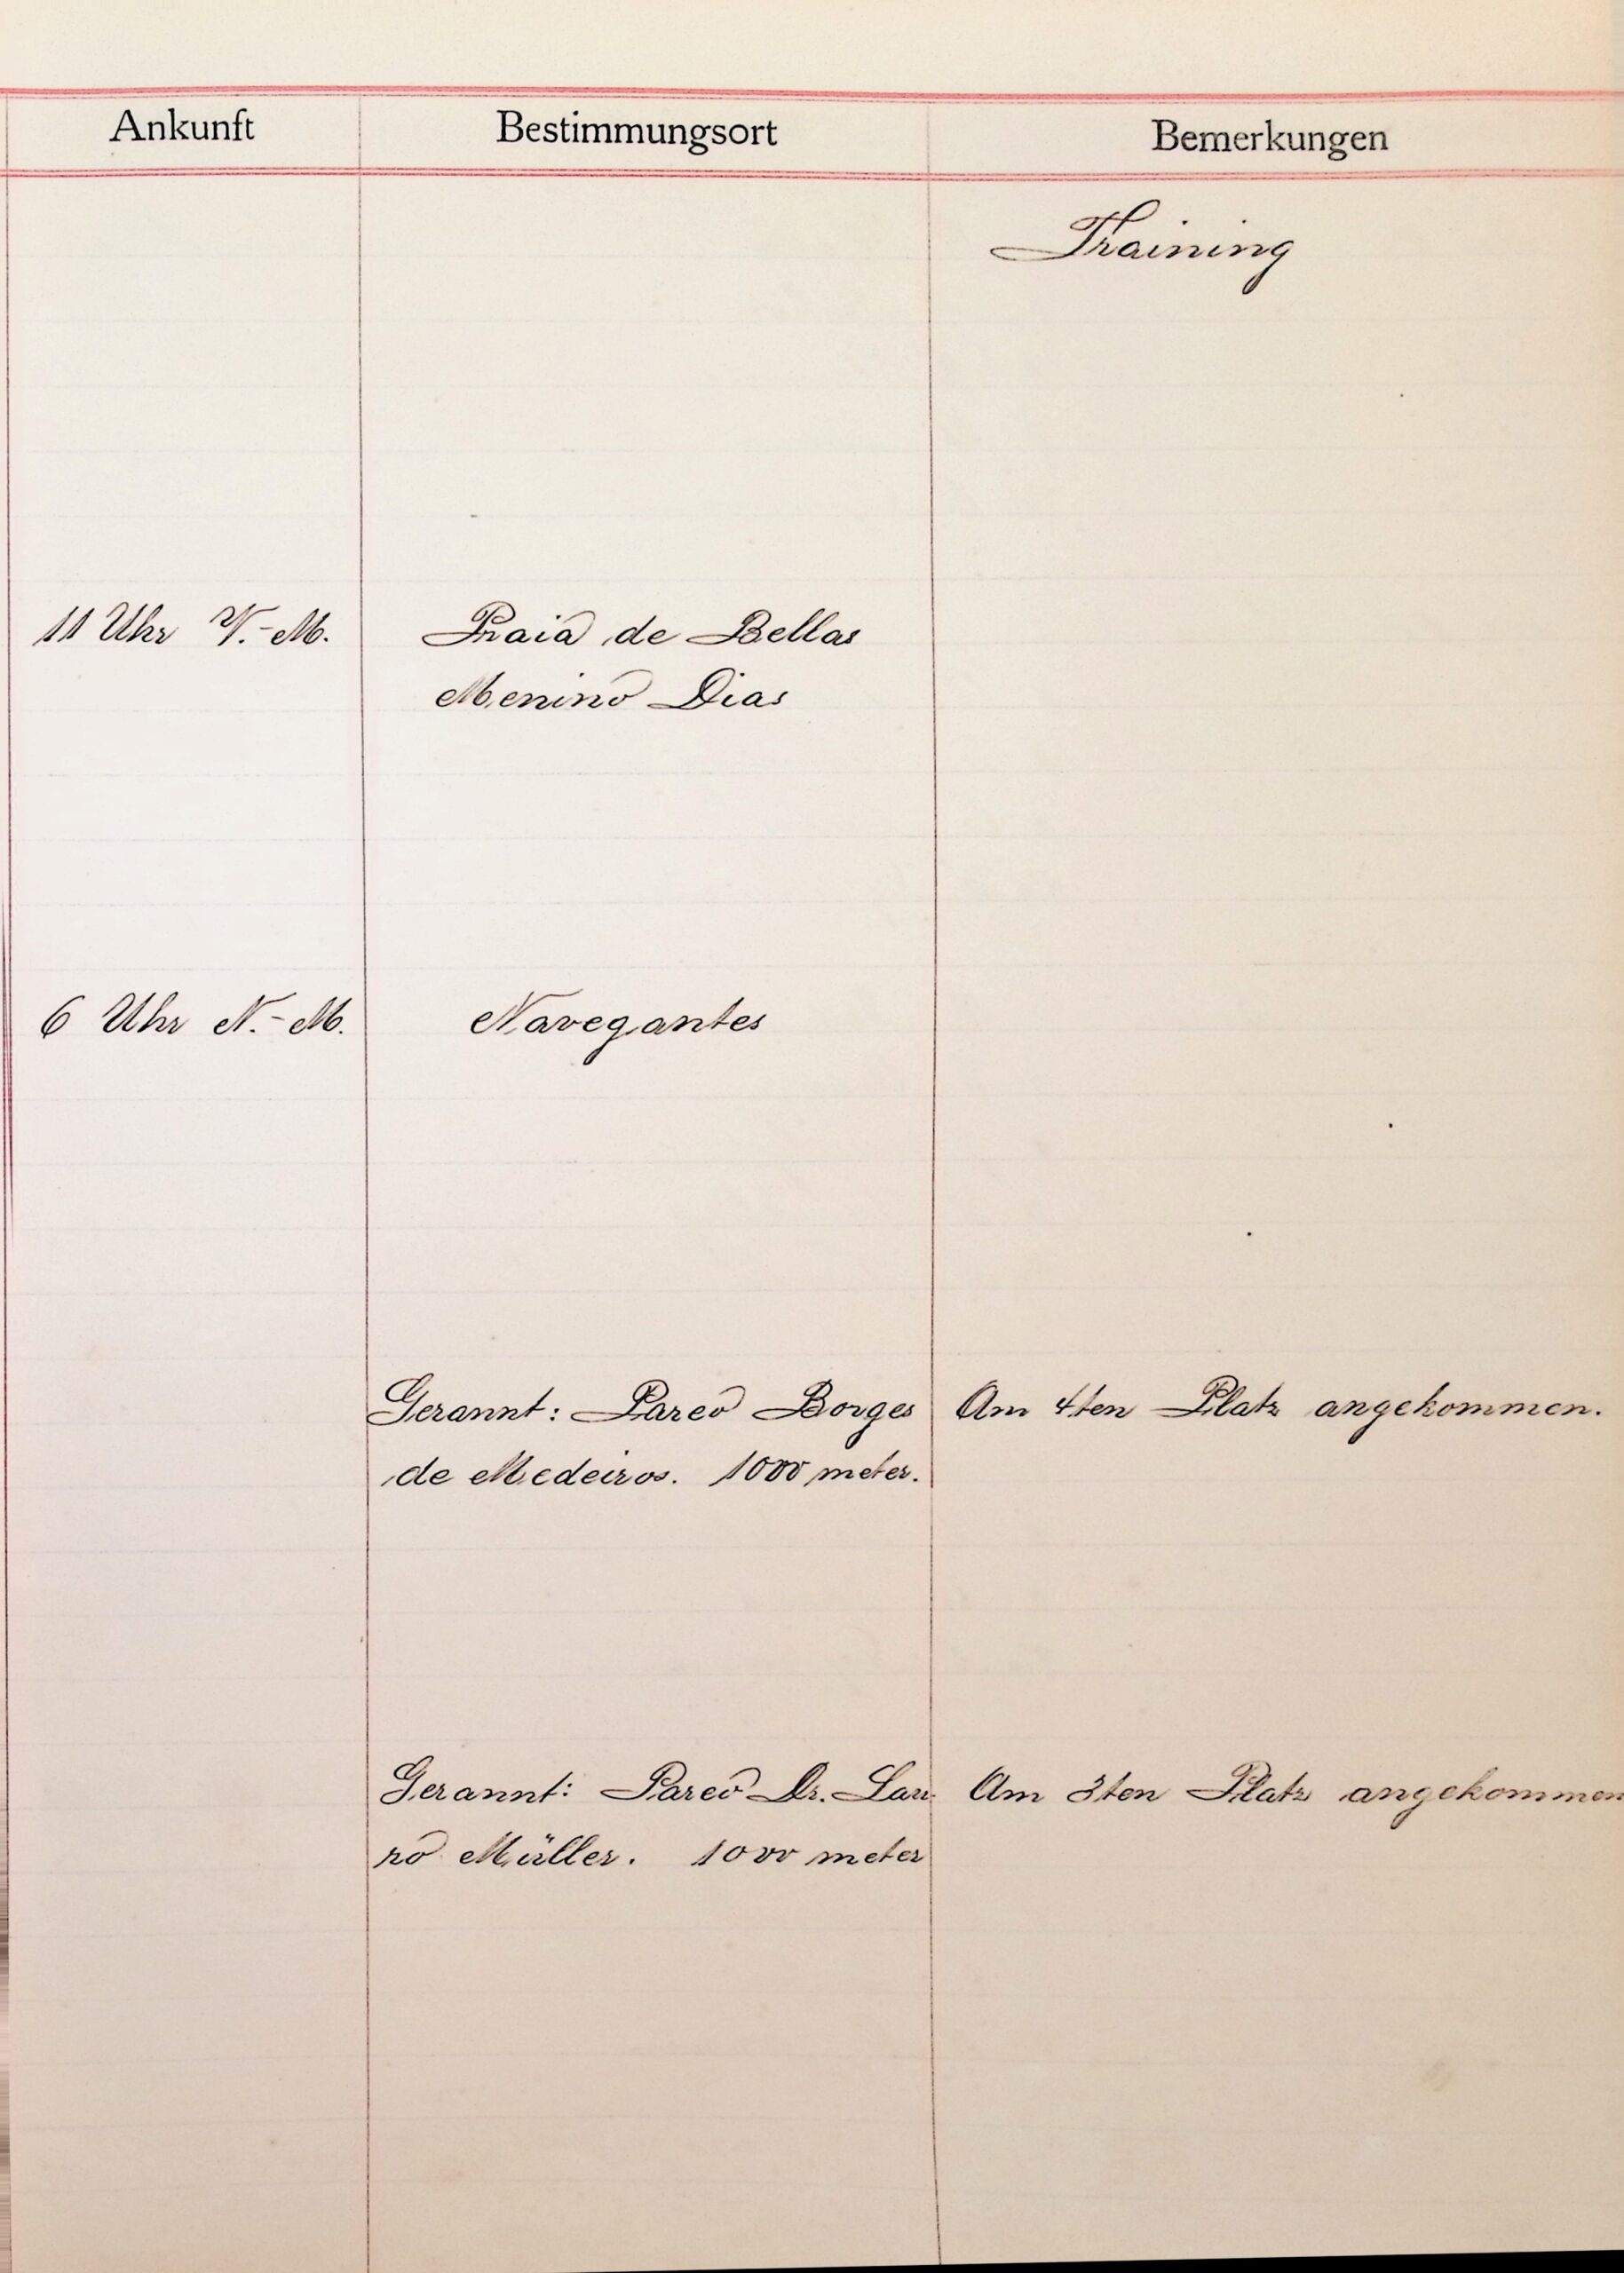 Ankunft Bestimmungsort Bemerkungen
Training
11 Uhr V.-M. Praia de Bellas
Menino Dias
6 Uhr N.-M. Navegantes
Gerannt: Pareo Borges Am 4ten Platz angekommen.
de Medeiros. 1000 meter.
Gerannt: Pareo Dr. Lau Am 3ten Platz angekommen
ro Müller. 1000 meter